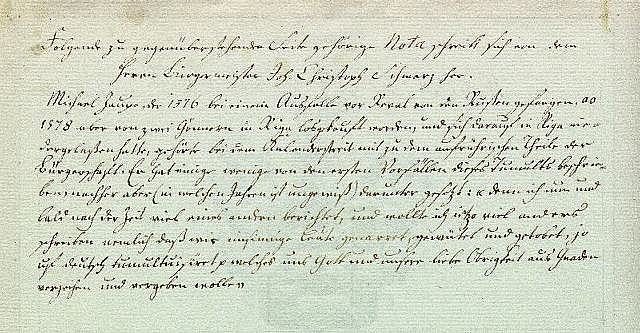 Folgende zu gegenüberstehenden Seite gehörige Nota schreibt sich von dem
Herrn Bürgermeister Joh. Christoph Schwarz her.
Michael Jaupe, der 1576 bei einem Ausfalle vor Reval von den Russen gefangen, ao
1578 aber von zwei Gönnern in Riga losgekauft worden, und sich darauf in Riga nie-
dergelassen hatte, gehörte bei dem Kalenderstreit mit zu dem aufrührischen Theile der
Bürgerschaft. Er hat einige wenige von den ersten Vorfällen dieses Tumults beschrie-
ben, nachher aber (in welchen Jahren ist ungewiß) darunter gesetzt: denn ich nun und
bald nach der Zeit viel eines andern berichtet, und wollte itzo viel anders
schreiben nemlich daß wir unsinnige Leute genarret, gewütet und getobet, so
auf deutsch tumultuisiret welches uns Gott und unsere liebe Obrigkeit aus Gnaden
verzeihen und vergeben wollen